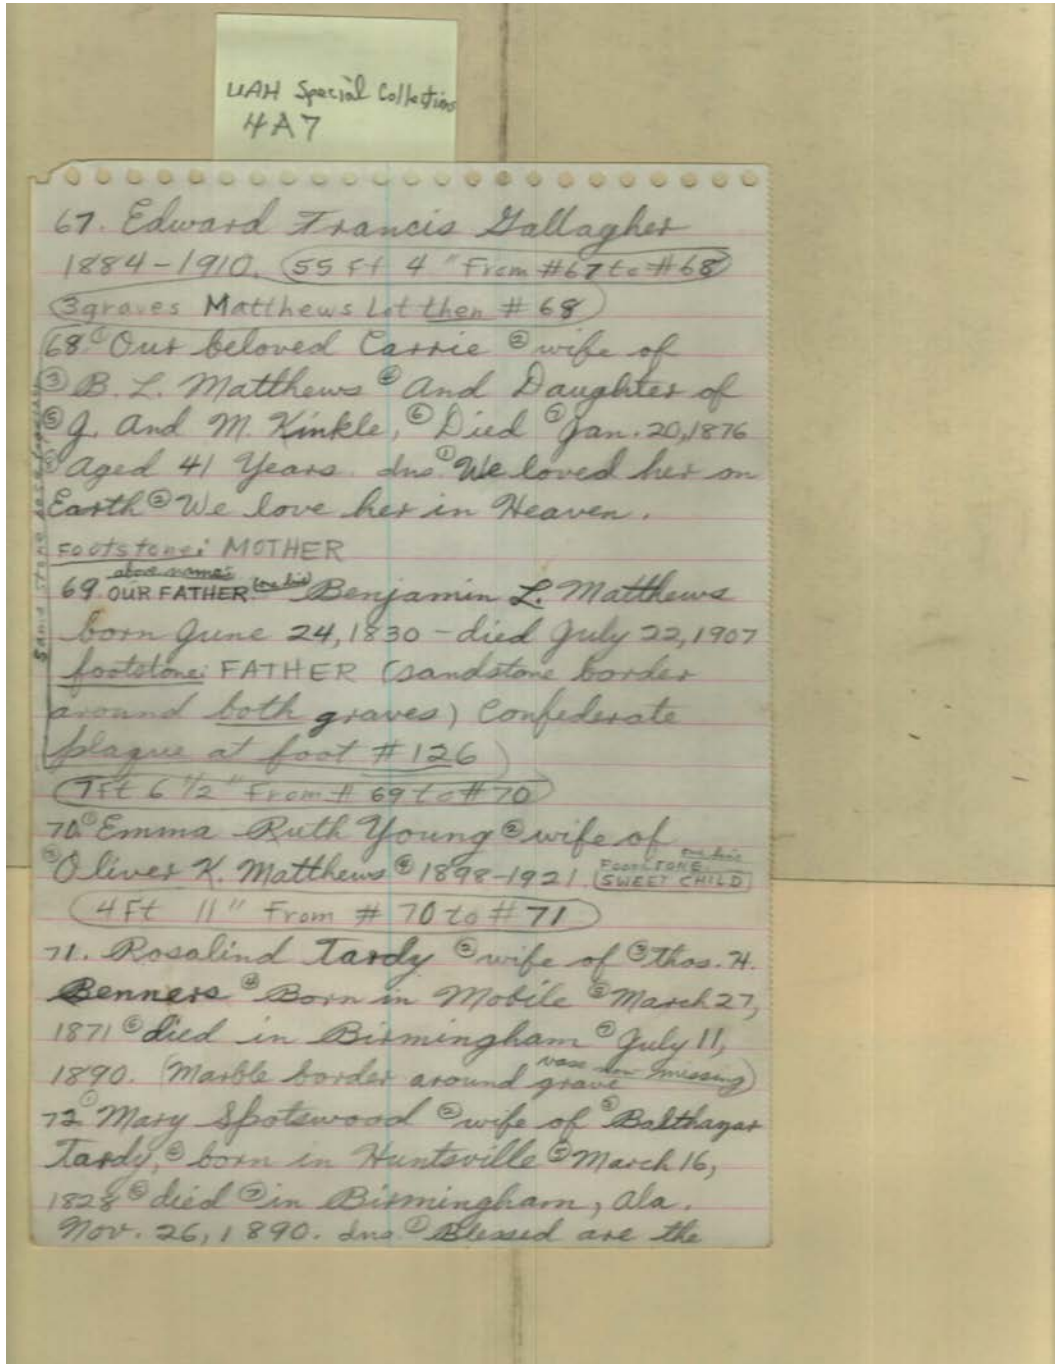 UAH Special Collection
4A7
67. Edward Francis Gallagher
1884-1910. (55 Ft 4" From #67 to #68)
(3 graves Matthews Lot then # 68)
68. ① Our beloved Carrie ② wife of
③ B. L. Matthews ④ And Daughter of
⑤ J. And M. Kinkle, ⑥ Died ⑦ Jan. 20, 1876
Aged 41 Years. dns ① We loved her on
Earth ② We love her in Heaven.
Footstone: MOTHER
above name:
69. OUR FATHER. (one line) Benjamin L. Matthews
born June 24, 1830 - died July 22, 1907
footstone: FATHER (sandstone border
around both graves) Confederate
plaque at foot #126
(7 Ft 6 1/2" From # 69 to # 70)
70. ① Emma Ruth Young ② wife of
③ Oliver K. Matthews ④ 1898-1921. FOOTSTONE one line
SWEET CHILD
(4 Ft 11" From # 70 to # 71)
71. Rosalind Tardy ② wife of ③ Thos. H.
Benners ④ Born in Mobile ⑤ March 27,
1871 ⑥ died in Birmingham ⑦ July 11,
1890. (Marble border around grave vase now missing)
72 ① Mary Spotswood ② wife of ③ Balthazar
Tardy, ④ born in Huntsville ⑤ March 16,
1828 ⑥ died ⑦ in Birmingham, Ala.
Nov. 26, 1890. dns ① Blessed are the